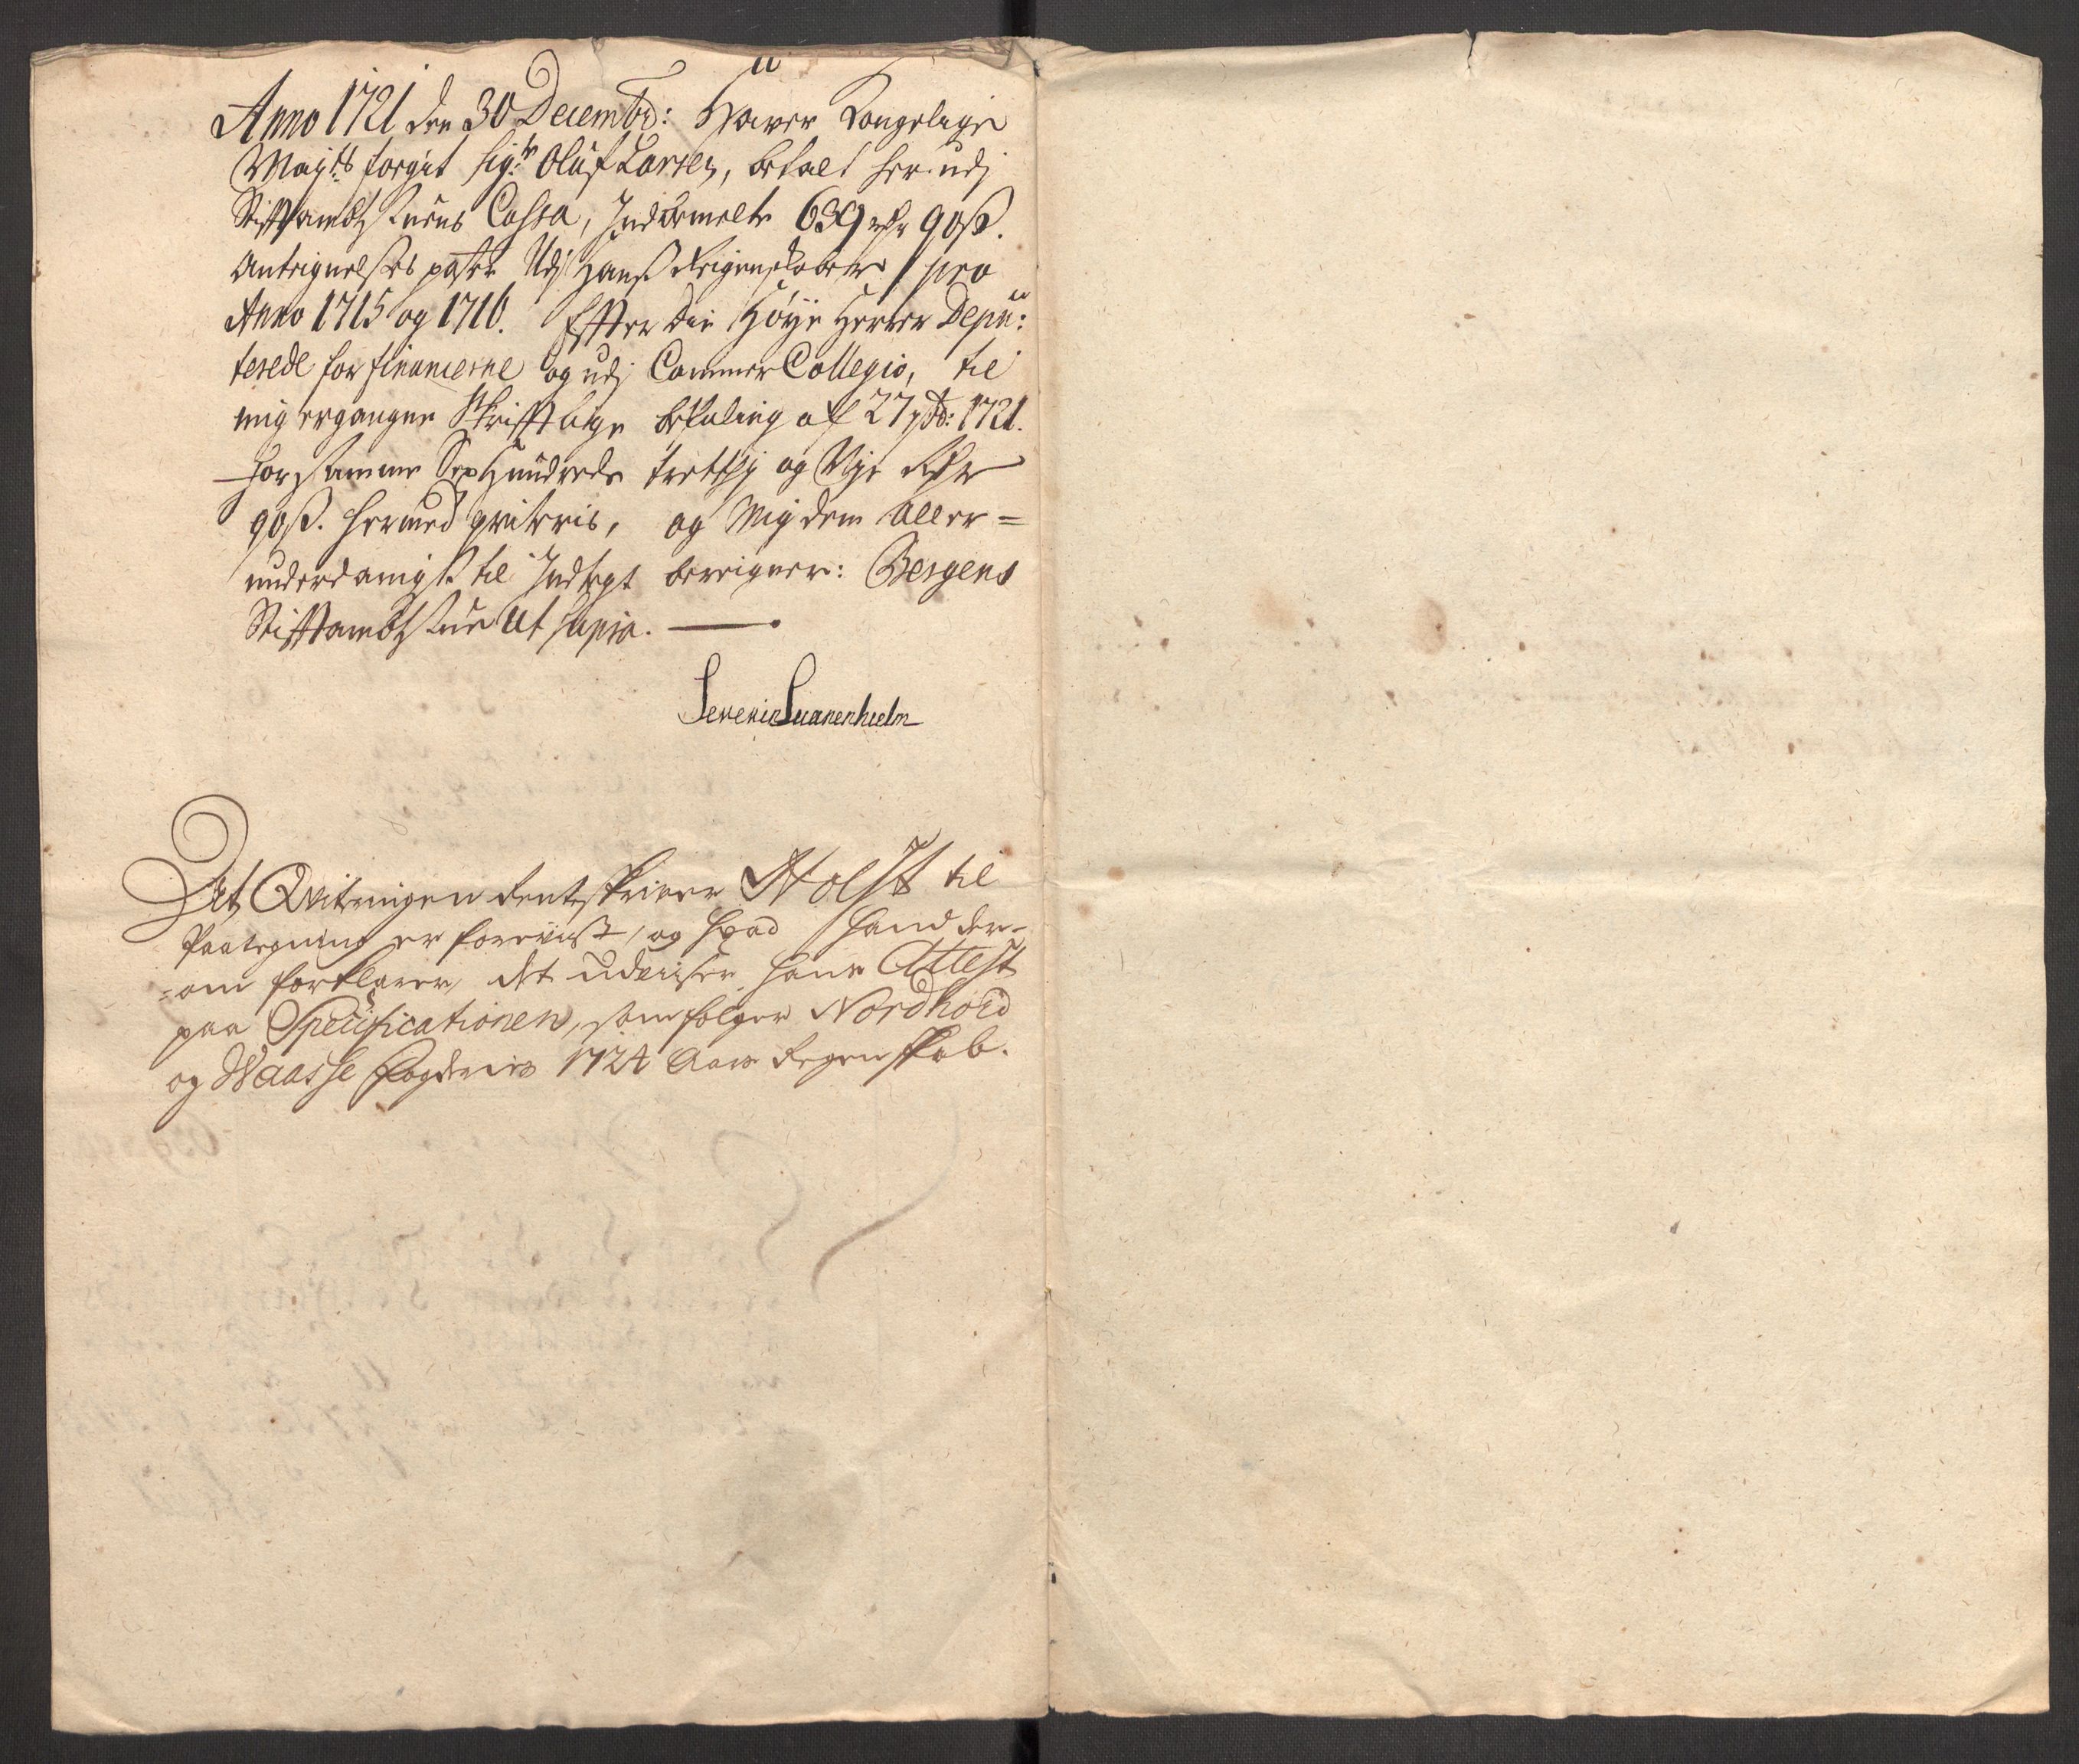 Anno 1721 den 30 Decembr: Haver Kongelige
Mayts fogit Sigr Oluf Larsen, betalt her udj
Stifftambtstuens Cassa, Indbemelte 639 rdr 90 ß.
Antegnelses poster Udj Hans Reigenskaber pro
Anno 1715 og 1716. Effter die Høye Herrer Depu:
terede for financerne og udj Cammer Collegio, til
mig ergangne Skrifftlige befaling af 27 7br: 1721.
for samme Sex Hundrede trettj og Nje Rdr
90 ß. hermed qviteris, og Mig dem aller=
underdanigst til Indtegt bereigner: Bergens
Stifftambtstue Ut supra.
Severin Svanenhielm
At Qviteringen Rentskriver Holst til
Paategning er foreviist, og hvad hand der=
=om forklarer, det udviser hans Attest
paa Specificationen, som følger Nordhord
og Waasse Fogderies 1724 Aars Regenskab.